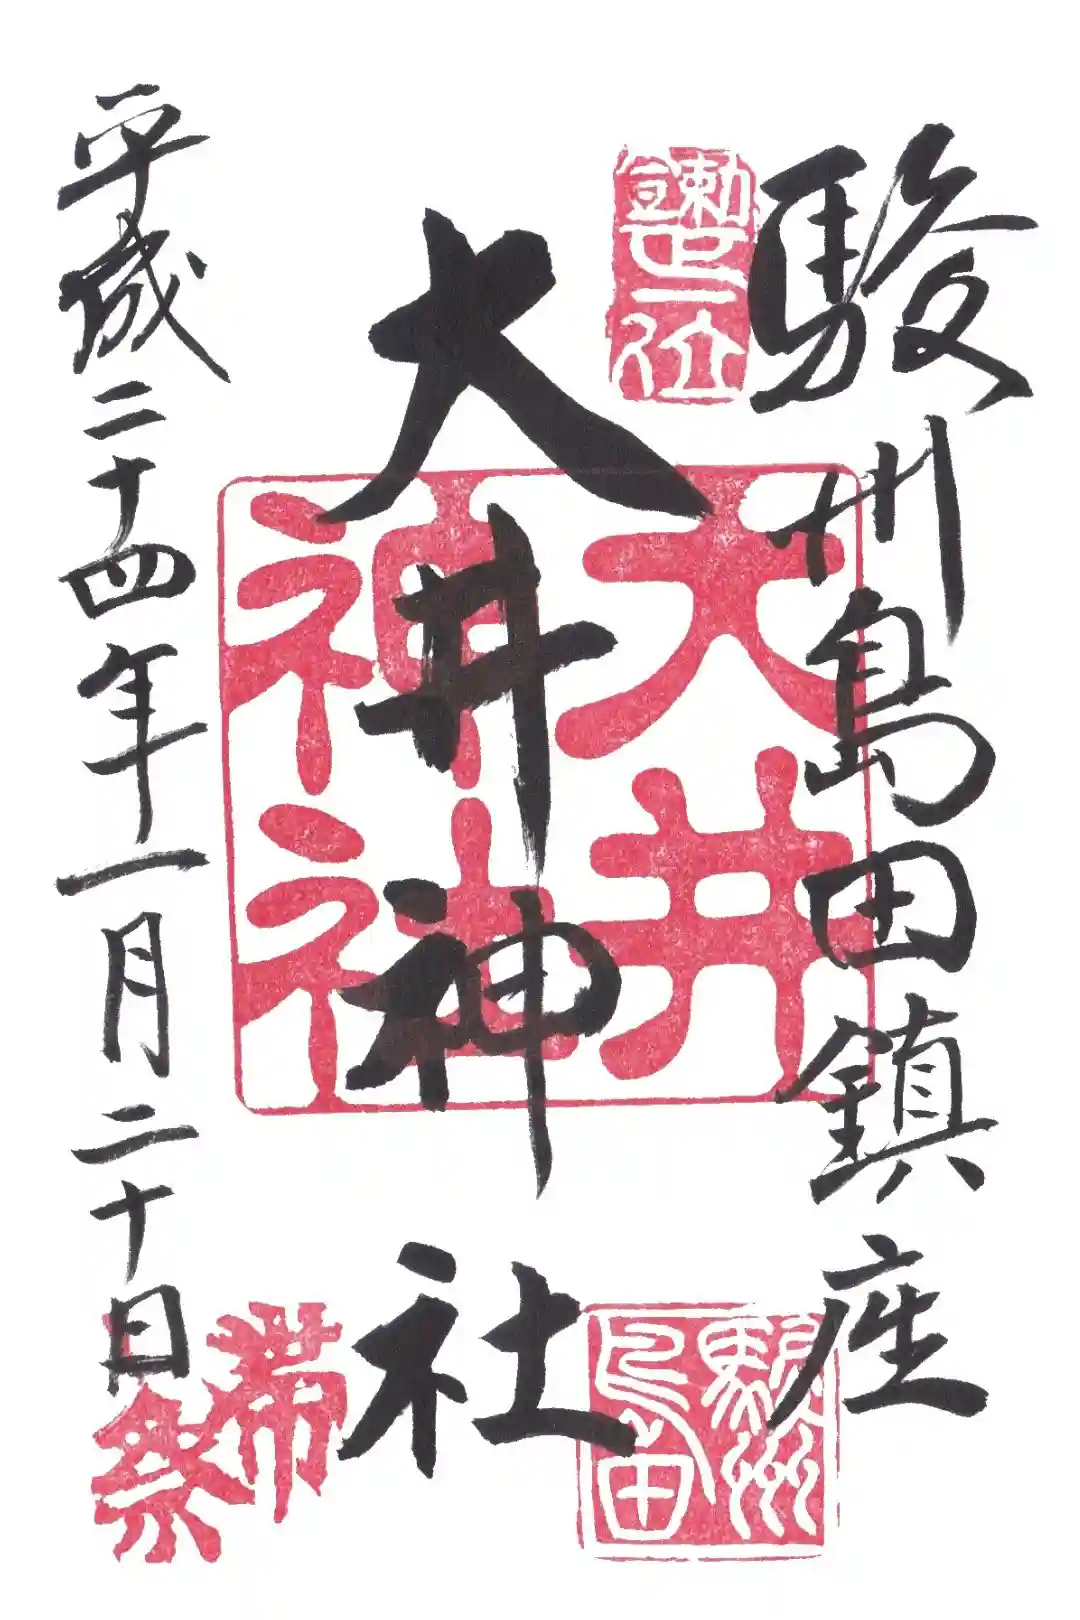 駿州島田鎮座
勅宣正一位
大井神社
大井神社
駿州島田
平成二十四年一月二十日
帯祭